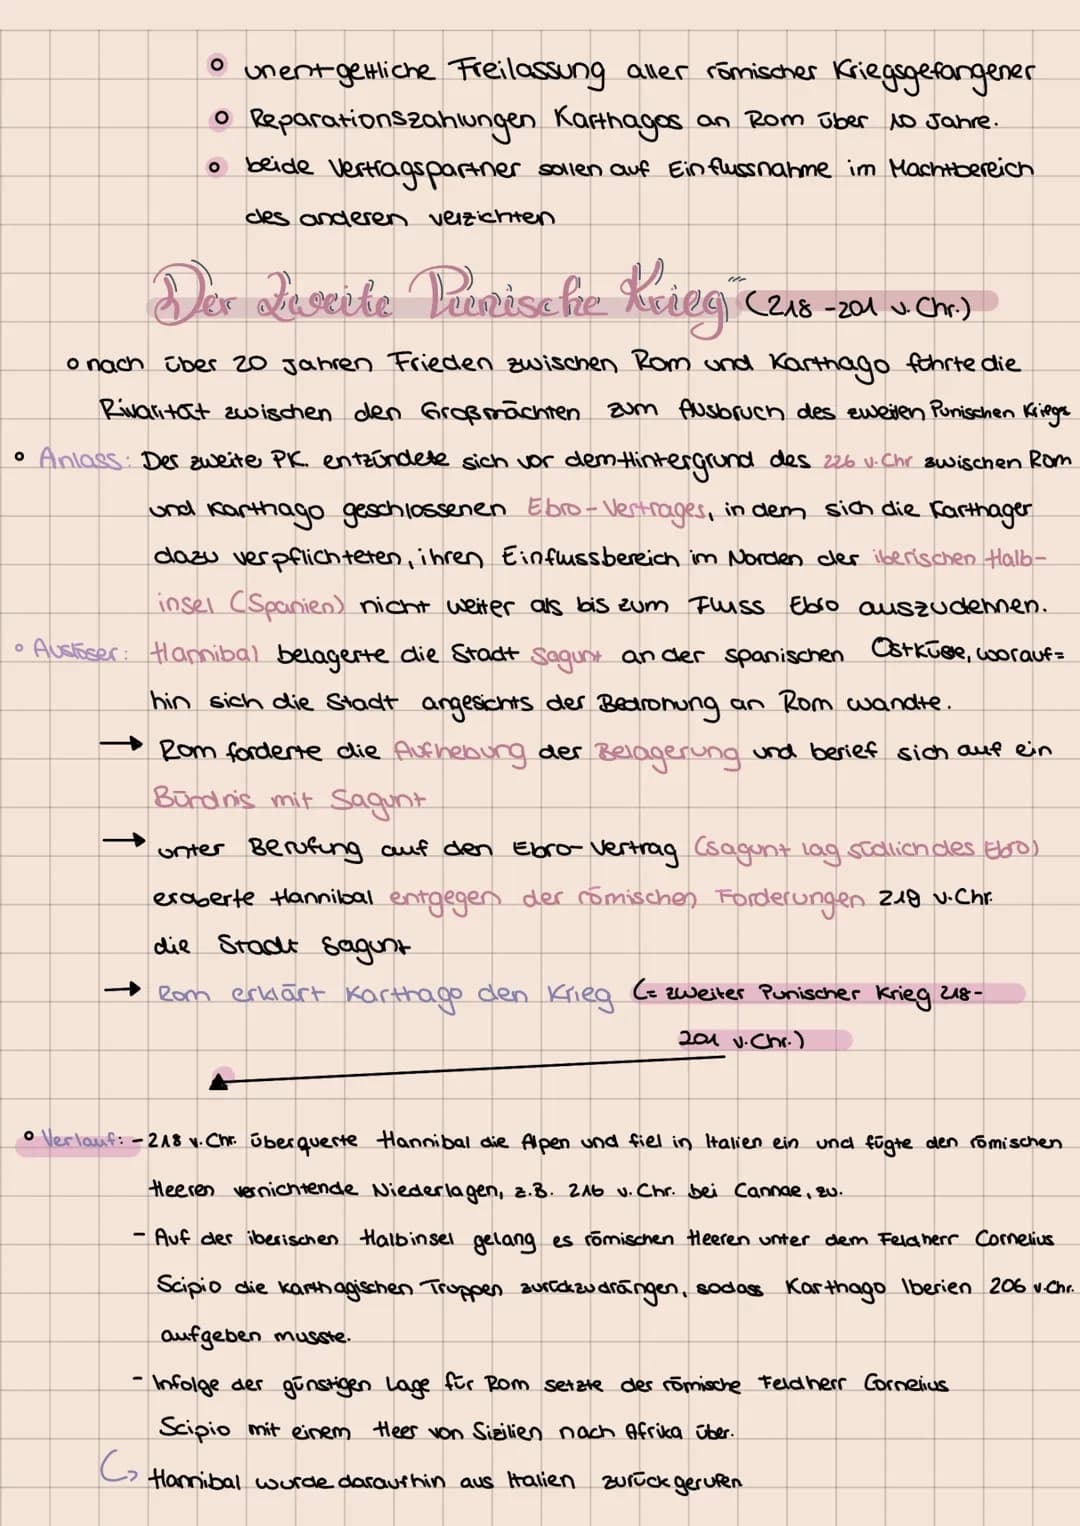 unentgeltliche Freilassung aller römischer Kriegsgefangener
Reparationszahlungen Karthagos an Rom über 10 Jahre.
beide Vertragspartner sollen auf Einflussnahme im Machtbereich
des anderen verzichten
Der Zweite Punische Krieg (218-201 v. Chr.)
nach über 20 Jahren Frieden zwischen Rom und Karthago führte die
Rivarität zwischen den Großmächten zum Ausbruch des zweiten Punischen Kriegs
Anlass: Der zweite PK. entzündete sich vor dem Hintergrund des 226 v. Chr zwischen Rom
und Karthago geschlossenen Ebro-Vertrages, in dem sich die Karthager
dazu verpflichteten, ihren Einflussbereich im Norden der iberischen Halb-
insel (Spanien) nicht weiter als bis zum Fluss Ebro auszudehnen.
Auslöser: Hannibal belagerte die Stadt Sagunt an der spanischen Ostküse, worauf=
hin sich die Stadt angesichts der Bedrohung an Rom wandte.
→ Rom forderte die Aufhebung der Belagerung und berief sich auf ein
Bündnis mit Sagunt
→ unter Berufung auf den Ebro-Vertrag (Sagunt lag südlich des Ebro)
eroberte Hannibal entgegen der römischen Forderungen 219 v. Chr.
die Stadt Sagunt
→ Rom erklärt Karthago den Krieg (= zweiter Punischer Krieg 218-
201 v. Chr.)
Verlauf: - 218 v. Chr. überquerte Hannibal die Alpen und fiel in Italien ein und fügte den römischen
Heeren vernichtende Niederlagen, z.B. 216 v. Chr. bei Cannae, zu.
- Auf der iberischen Halbinsel gelang es römischen Heeren unter dem Feldherr Cornelius
Scipio die karthagischen Truppen zurückzudrängen, sodass Karthago Iberien 206 v. Chr.
aufgeben musste.
- Infolge der günstigen Lage für Rom setzte der römische Feldherr Cornelius
Scipio mit einem Heer von Sizilien nach Afrika über.
Hannibal wurde daraufhin aus Italien zurückgerufen